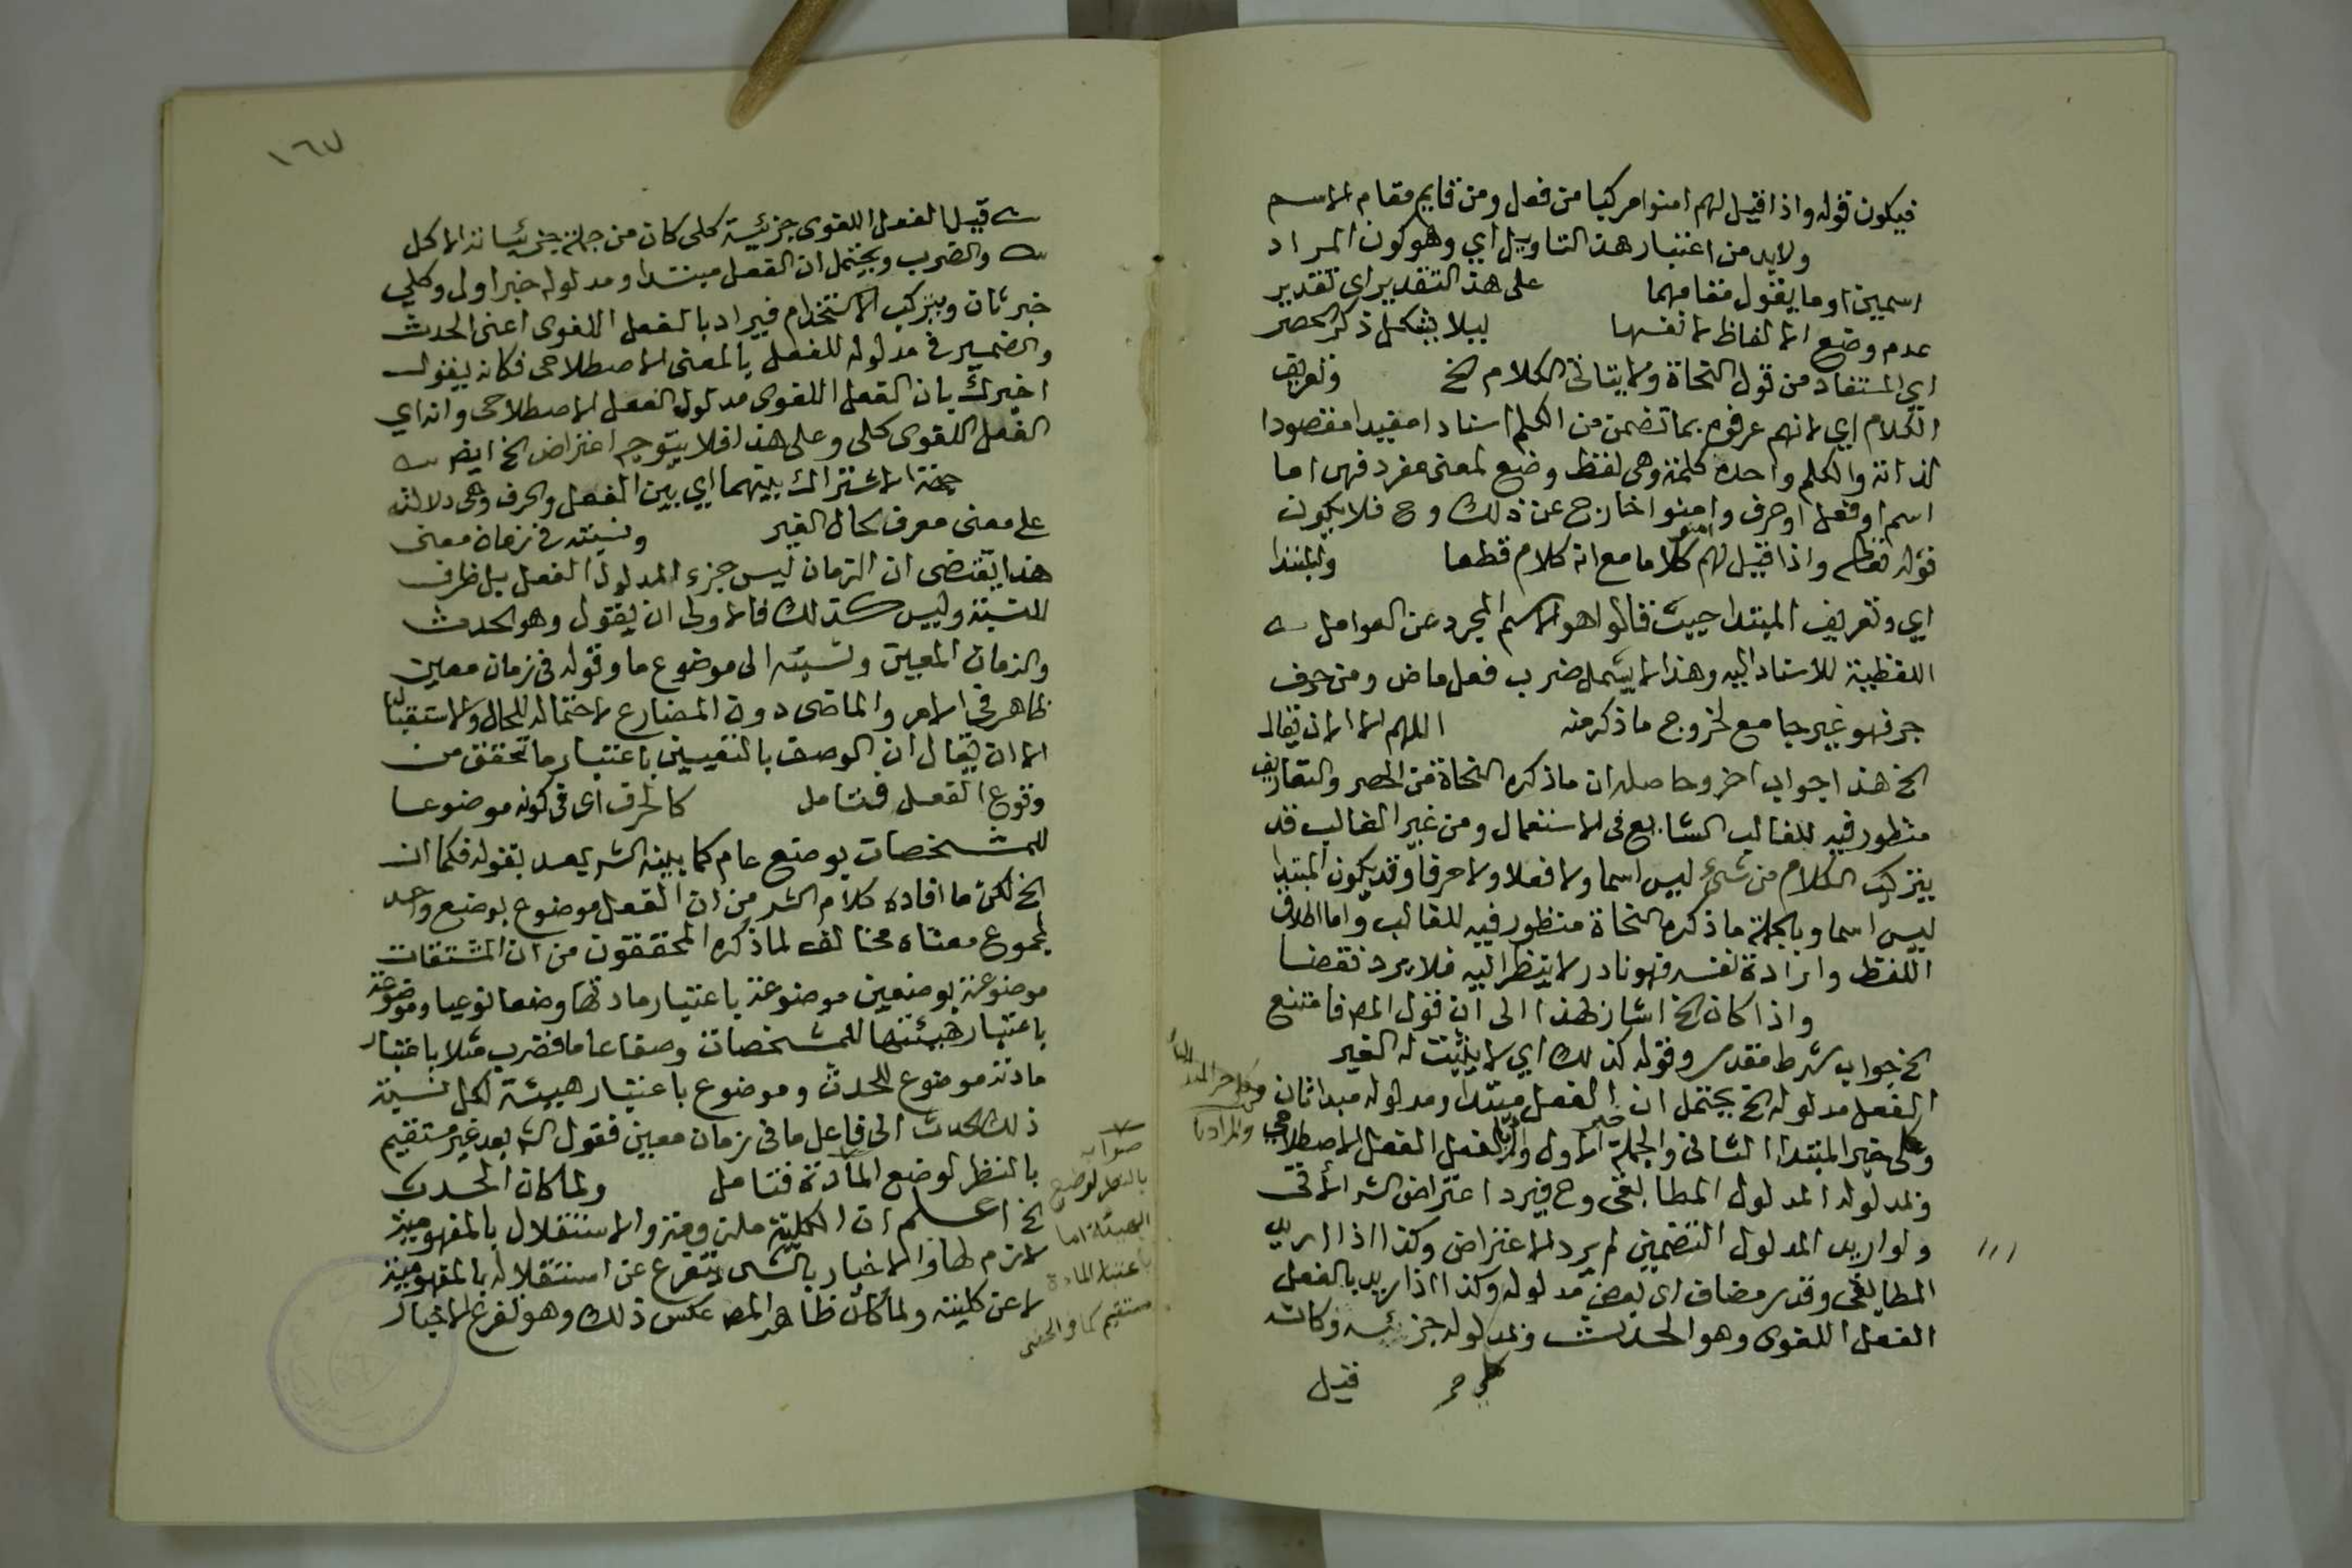 فيكون قوله واذا قيل لهم امنوا مركبا من فعل ومن قايم مقام الاسم
ولابد من اعتبار هذا التاويل اي وهو كون المراد
اسمين او ما يقول مقامهما على هذا التقدير اى تقدير
عدم وضع الالفاظ لانفسها ليلا يشكل ذكر الحصر
اي المستفاد من قول النحاة ولا يتاتى الكلام الخ وتعريف
الكلام اي لانهم عرفوه بما تضمن من الكلم اسنادا مفيدا مقصودا
لذاته والكلم واحده كلمة وهى لفظ وضع لمعنى مفرد فهى اما
اسم او فعل او حرف وامنوا خارج عن ذلك وح فلا يكون
قوله تعالى واذا قيل لهم امنوا كلاما مع انه كلام قطعا والمبتدا
اي وتعريف المبتدا حيث قالوا هو الاسم المجرد عن العوامل
اللفظية للاسناد اليه وهذا لا يشمل ضرب فعل ماض ومن حرف
جر فهو غير جامع لخروج ما ذكر منه اللهم الا ان يقال
الخ هذا جواب اخر وحاصله ان ما ذكره النحاة من الحصر والتعاريف
منظور فيه للغالب الشايع فى الاستعمال ومن غير الغالب قد
يتركب الكلام من شئ ليس اسما ولا فعلا ولا حرفا وقد يكون المبتدا
ليس اسما وبالجملة ما ذكره النحاة منظور فيه للغالب واما اطلاق
اللفظ وارادة نفسه فهو نادر لا ينظر اليه فلا يرد نقضا
واذا كان الخ اشار بهذا الى ان قول المص فامتنع
الخ جواب شرط مقدر وقوله كذلك اي لا يثبت له الغير
الفعل مدلوله الخ يحتمل ان الفعل مبتدا ومدلوله مبدا ثان
وكلى خبر المبتدا الثانى والجملة خبر الاول والمراد بالفعل الفعل الاصطلاحي
وبمدلوله المدلول المطابقى وح فيرد اعتراض الشر الاتى
ولو اريد المدلول التضمنى لم يرد الاعتراض وكذا اذا اريد
المطابقى وقدر مضاف اى بعض مدلوله وكذا اذا اريد بالفعل
الفعل اللغوى وهو الحدث وبمدلوله جزئيه وكانت
قيل
١٦٧
قبيل الفعل اللغوى جزئية كلى كان من جملة جزئياته الاكل
والضرب ويحتمل ان الفعل مبتدا ومدلوله خبر اول وكلي
خبر ثان ويرتكب الاستخدام فيراد بالفعل اللغوى اعنى الحدث
والضمير فى مدلوله للفعل بالمعنى الاصطلاحى فكانه يقول
اخبرك بان الفعل اللغوى مدلول الفعل الاصطلاحى وانه اي
الفعل اللغوى كلى وعلى هذا فلا يتوجه اعتراض الخ ايضا
جهة الاشتراك بينهما اي بين الفعل والحرف وهى دلالته
على معنى معرف بحال الغير ونسبته فى زمان معنى
هذا يقتضى ان الزمان ليس جزء المدلول الفعل بل ظرف
للنسبة وليس كذلك فالاولى ان يقول وهو الحدث
والزمان المعين ونسبته الى موضوع ما وقوله فى زمان معين
ظاهر فى الامر والماضى دون المضارع لاحتماله للحال والاستقبال
الا ان يقال ان الوصف بالتعيين باعتبار ما تحقق من
وقوع الفعل فتامل كالحرف اى فى كونه موضوعا
للمشخصات بوضع عام كما يبينه الشر بعد بقوله فكما ان
الخ لكن ما افاده كلام الشر من ان الفعل موضوع بوضع واحد
لمجموع معناه مخالف لما ذكره المحققون من ان المشتقات
موضوعة بوضعين موضوعة باعتبار مادتها وضعا نوعيا وموضوعة
باعتبار هيئتها للمشخصات وضعا عاما فضرب مثلا باعتبار
مادته موضوع للحدث وموضوع باعتبار هيئة لكل نسبة
ذلك الحدث الى فاعل ما فى زمان معين فقول الشر بعد غير مستقيم
بالنظر لوضع المادة فتامل ولما كان الحدث
الخ اعلم ان الكلية ملزومة والاستقلال بالمفهومية
لازم لها والاخبار بالشى يتفرع عن استقلاله بالمفهومية
لا عن كليته ولما كان ظاهر المص عكس ذلك وهو تفرع الاخبار
صوابه
بالنظر لوضع
الهيئة اما
باعتبار المادة